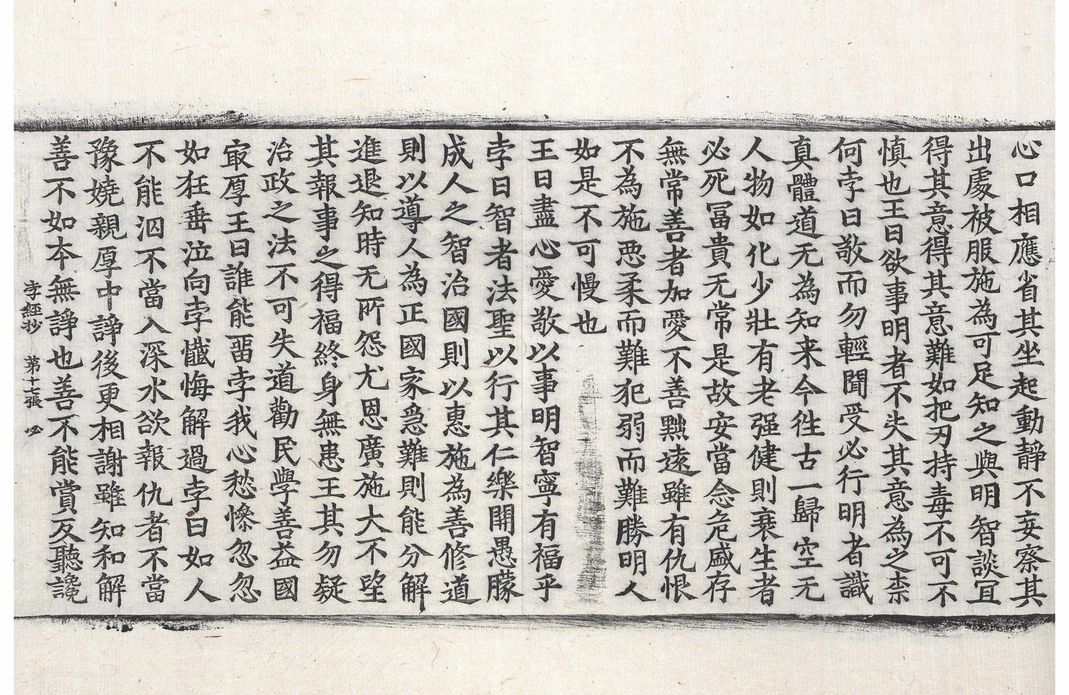 心口相應省其坐起動靜不妄察其
出處被服施為可足知之與明智談冝
得其意得其意難如把刃持毒不可不
慎也王曰欲事明者不失其意為之柰
何孛曰敬而勿輕聞受必行明者識
真體道无為知来今徃古一歸空无
人物如化少壯有老强健則衰生者
必死冨貴无常是故安當念危盛存
無常善者加愛不善黜遠雖有仇恨
不為施惡柔而難犯弱而難勝明人
如是不可慢也
王曰盡心愛敬以事明智寧有福乎
孛曰智者法聖以行其仁樂開愚朦
成人之智治國則以惠施為善修道
則以導人為正國家急難則能分解
進退知時无所怨尤恩廣施大不望
其報事之得福終身無患王其勿疑
治政之法不可失道勸民學善益國
㝡厚王曰誰能畱孛我心愁慘忽忽
如狂垂泣向孛懺悔解過孛曰如人
不能泅不當入深水欲報仇者不當
豫嬈親厚中諍後更相謝雖知和解
善不如夲無諍也善不能賞反聽讒
孛經抄 苐十七張 必